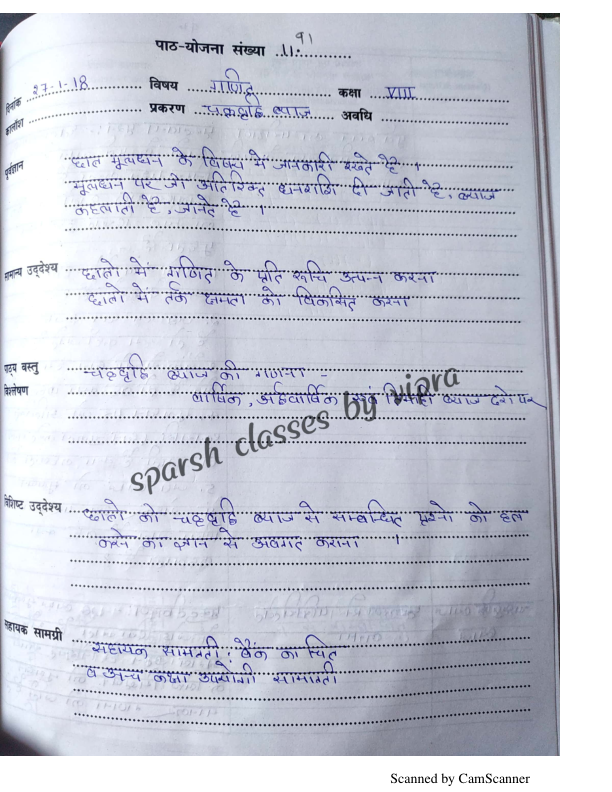 91
पाठ-योजना संख्या ..11............
दिनांक ..27.1.18.......... विषय ...गणित......... कक्षा ....VIII.........
कालांश .......... प्रकरण ..चक्रवृद्धि ब्याज.... अवधि ..........
पूर्वज्ञान छात्र मूलधन के विषय में जानकारी रखते है ।
मूलधन पर जो अतिरिक्त धनराशि दी जाती है, ब्याज
कहलाती है, जानते है ।
सामान्य उद्देश्य छात्रो में गणित के प्रति रूचि उत्पन्न करना
छात्रो में तर्क क्षमता को विकसित करना
पाठ्य वस्तु चक्रवृद्धि ब्याज की गणना -
विश्लेषण वार्षिक, अर्द्धवार्षिक एवं तिमाही ब्याज दरो पर
sparsh classes by vipra
विशिष्ट उद्देश्य छात्रो को चक्रवृद्धि ब्याज से सम्बन्धित प्रश्नो को हल
करने का ज्ञान से अवगत कराना ।
सहायक सामग्री सहायक सामग्री : बैंक का चित्र
व अन्य कक्षा उपयोगी सामग्री
Scanned by CamScanner